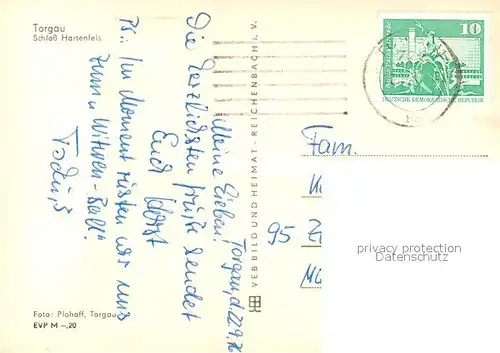 Torgau
Schloß Hartenfels
Torgau, d. 22.9.76
Meine Lieben!
Die herzlichsten Grüße sendet
Euch Horst
PS: Im Moment rüsten wir uns
zum „Witwen-Ball"
Foto: Plohoff, Torgau
EVP M –,20
VEB BILD UND HEIMAT · REICHENBACH i. V.
10
DEUTSCHE DEMOKRATISCHE REPUBLIK
Fam.
95
privacy protection
Datenschutz